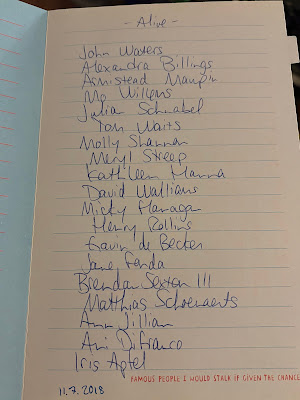 - Alive -
John Waters
Alexandra Billings
Armistead Maupin
Mo Willems
Julian Schnabel
Tom Waits
Molly Shannon
Meryl Streep
Kathleen Hanna
David Walliams
Micky Flanagan
Henry Rollins
Gavin de Becker
Jane Fonda
Brendan Sexton III
Matthias Schoenaerts
Ann Jillian
Ani DiFranco
Iris Apfel
FAMOUS PEOPLE I WOULD STALK IF GIVEN THE CHANCE
11.7.2018